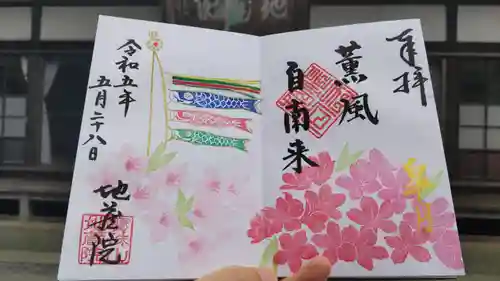 奉拝
薫風
自南来
令和五年
五月二十八日
地蔵院